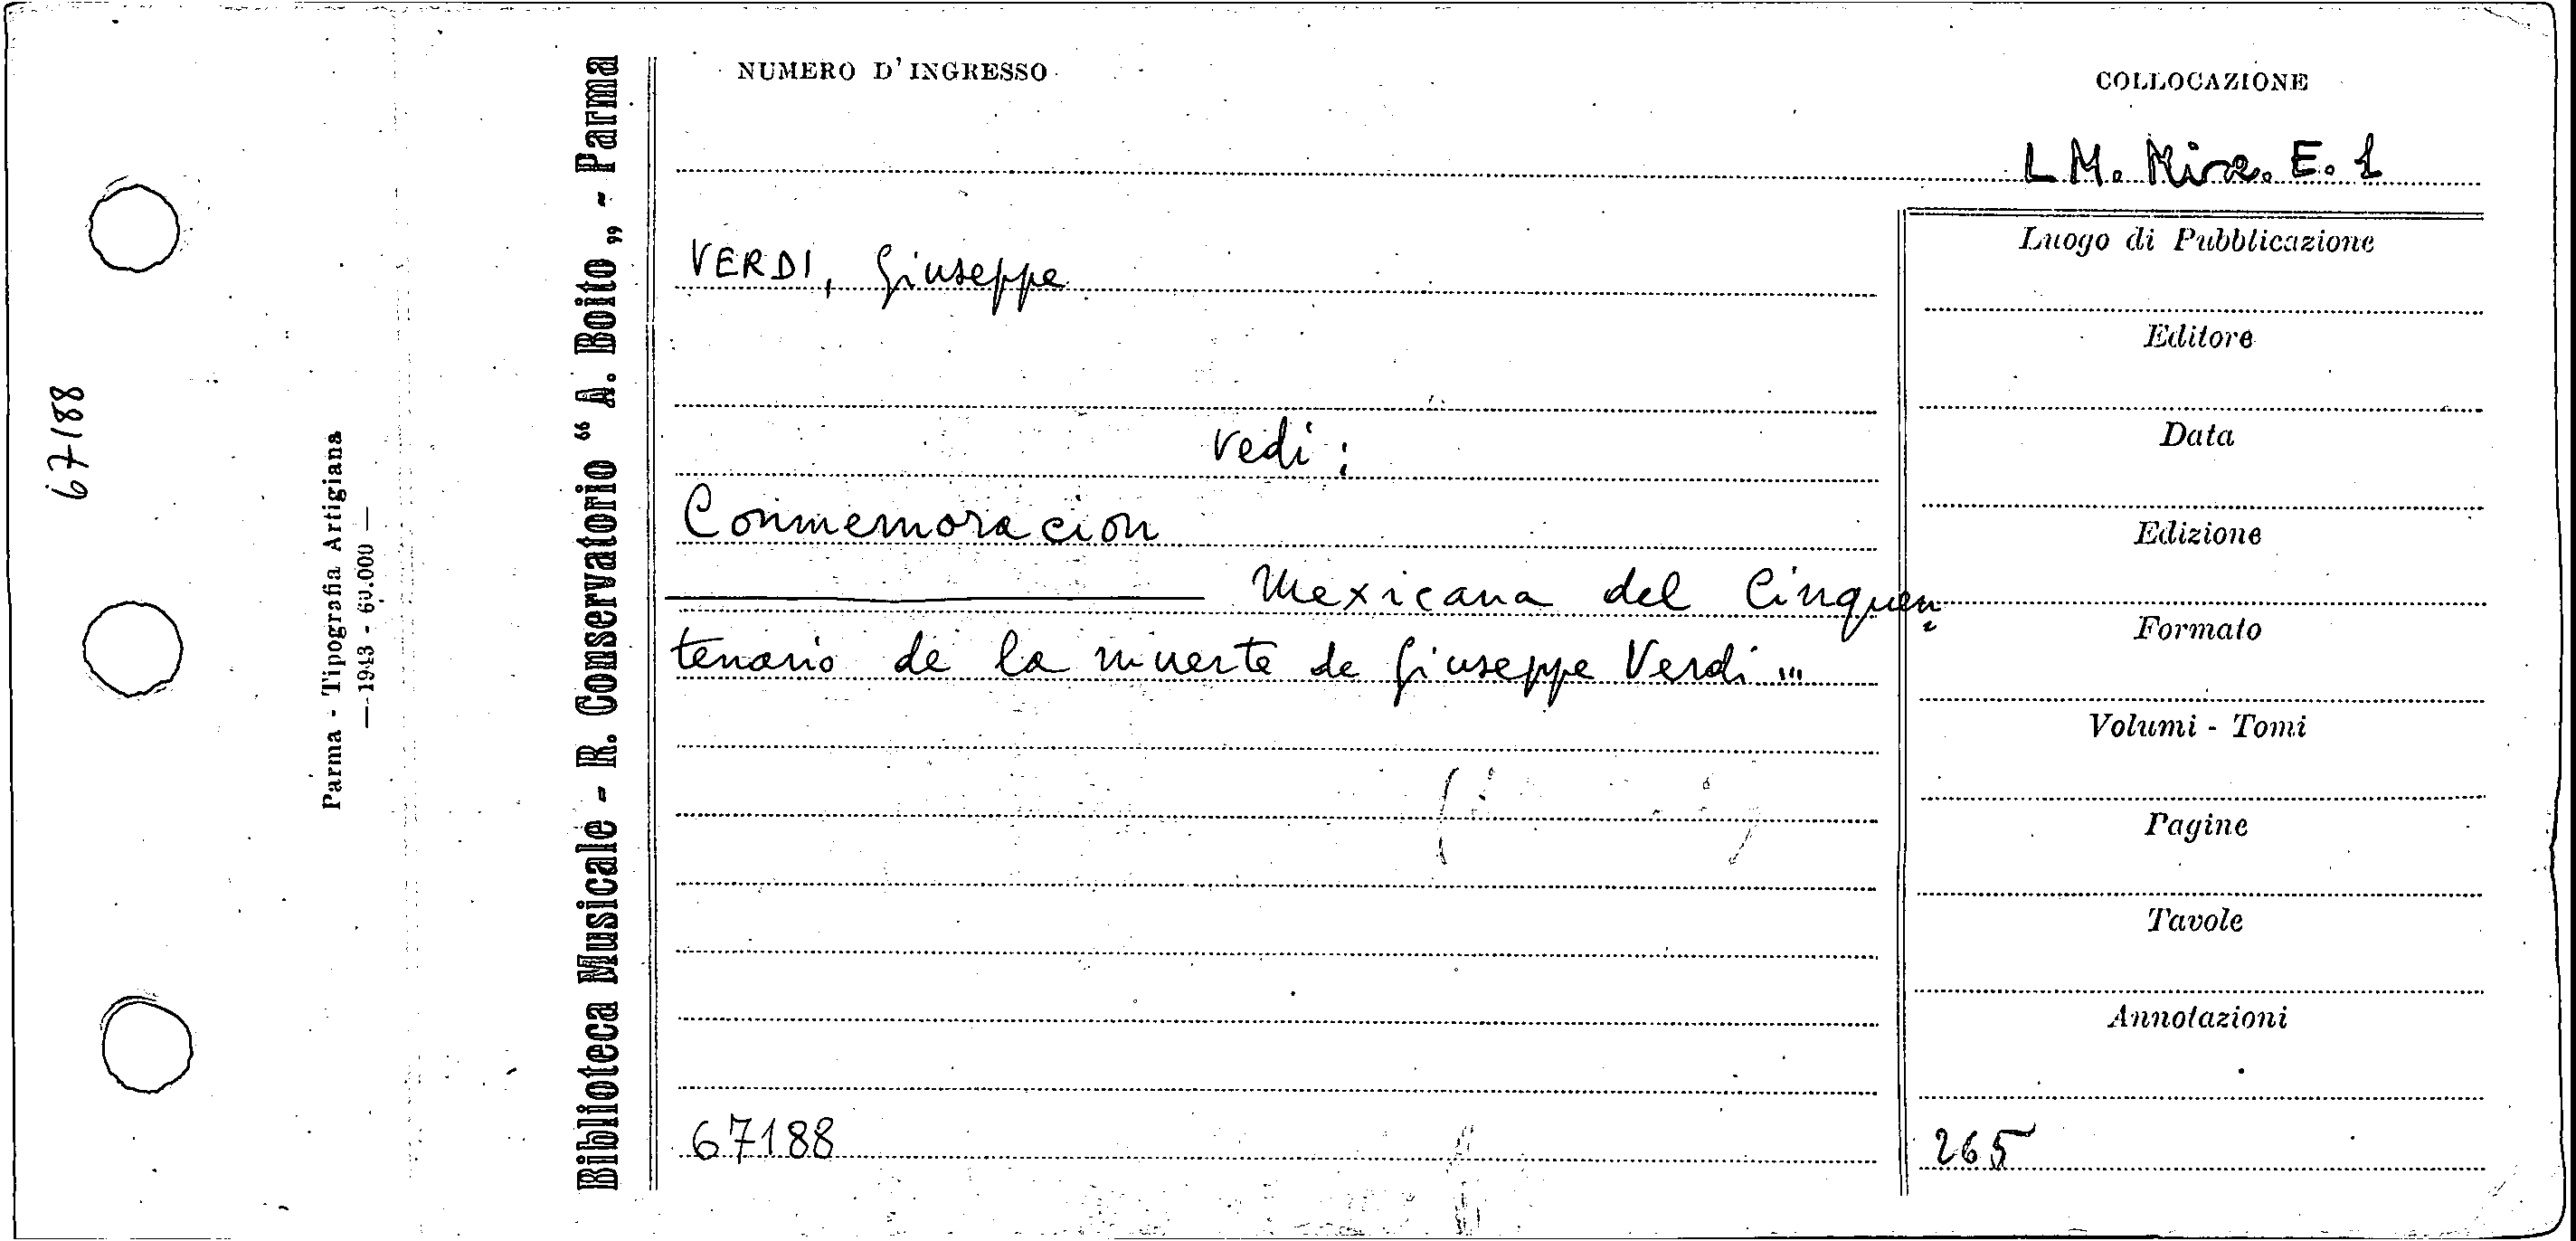 NUMERO D'INGRESSO
COLLOCAZIONE
L M. Misc. E. 1
VERDI, Giuseppe
vedi:
Conmemoracion
Mexicana del Cinquen
tenario de la muerte de Giuseppe Verdi ...
67188
Luogo di Pubblicazione
Editore
Data
Edizione
Formato
Volumi - Tomi
Pagine
Tavole
Annotazioni
265
Biblioteca Musicale - R. Conservatorio “ A. Boito „ - Parma
Parma - Tipografia Artigiana
— 1943 - 60.000 —
67188